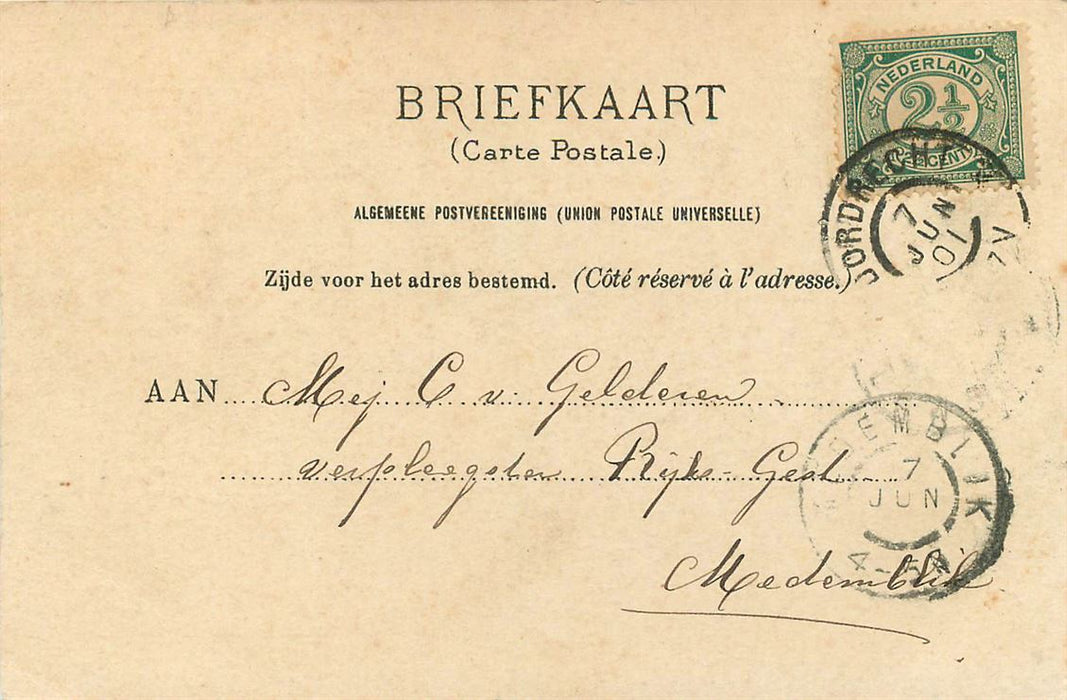 BRIEFKAART
(Carte Postale.)
ALGEMEENE POSTVEREENIGING (UNION POSTALE UNIVERSELLE)
Zijde voor het adres bestemd. (Côté réservé à l'adresse.)
NEDERLAND
2½
CENT
DORDRECHT
7 JUN 01
7V
AAN Mej C v. Gelderen
verpleegster Rijks-Gest.
Medemblik
EMBLIK
7
JUN